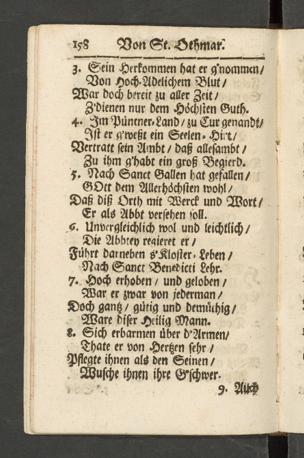 158 Von St. Othmar.
3. Sein Herkommen hat er g'nommen/
Von Hoch-Adelichem Blut/
War doch bereit zu aller Zeit/
Z'dienen nur dem Höchsten Guth.
4. Im Püntner-Land/ zu Cur genandt/
Ist er g'weßt ein Seelen-Hirt/
Vertratt sein Ambt/ daß allesambt/
Zu ihm g'habt ein groß Begierd.
5. Nach Sanct Gallen hat gefallen/
GOtt dem Allerhöchsten wohl/
Daß diß Orth mit Werck und Wort/
Er als Abbt versehen soll.
6. Unvergleichlich wol und leichtlich/
Die Abbtey regieret er/
Führt darneben s'Kloster-Leben/
Nach Sanct Benedicti Lehr.
7. Hoch erhoben/ und geloben/
War er zwar von jederman/
Doch gantz/ gütig und demüthig/
Ware diser Heilig Mann.
8. Sich erbarmen über d'Armen/
Thate er von Hertzen sehr/
Pflegte ihnen als den Seinen/
Wusche ihnen ihre G'schwer.
9. Auch